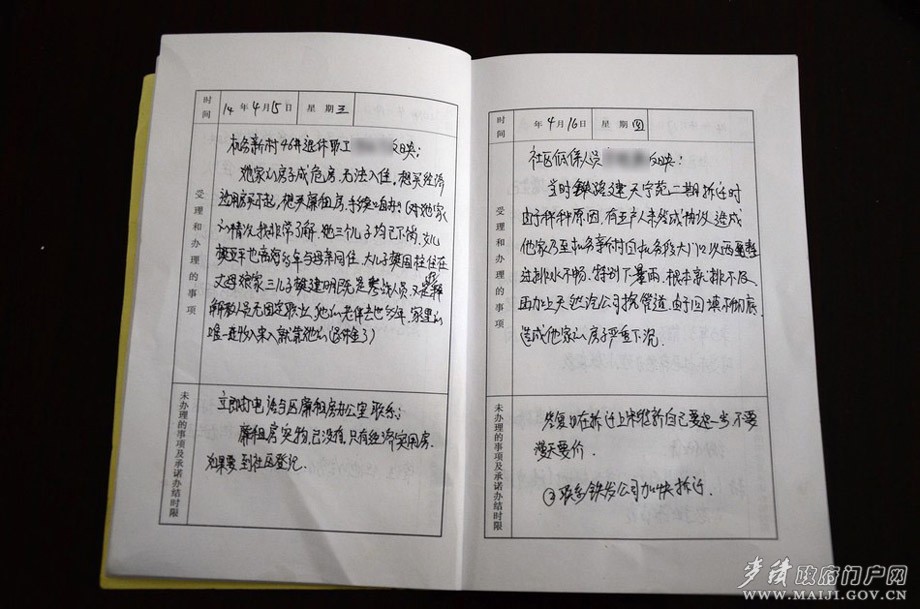 时间 14年4月15日 星期三
受理和办理的事项
机务新村46号退休职工 反映:
她家的房子成危房,无法入住,想买经济
适用房买不起,想买廉租房,手续咋办!(对她家
的情况我非常了解,她三个儿子均已下岗,女儿
离婚多年与母亲同住,大儿子 住在
丈母娘家,三儿子 既是 人员,又是
解教人员无固定职业,她的老伴去世多年,家里的
唯一连份收入就靠她的
未办理的事项及承诺办结时限
立即打电话与区廉租房办公室联系:
廉租房实物已没有,只有经济实用房,
如果要到社区登记.
时间 年4月16日 星期四
受理和办理的事项
社区低保人员 反映:
当时铁路建天宇苑二期拆迁时
由于种种原因,有五户人未达成协议,造成
他家乃至机务新村口机务段大门口以西
这排水不畅,特别下暴雨,根本就排不及,
再加上天然气公司挖管道,由于回填不彻底,
造成他家的房子严重下沉.
未办理的事项及承诺办结时限
答复:①在拆迁上来维护自己要让一步不要
漫天要价.
②联系铁发公司加快拆迁.
麦积政府门户网
WWW.MAIJI.GOV.CN